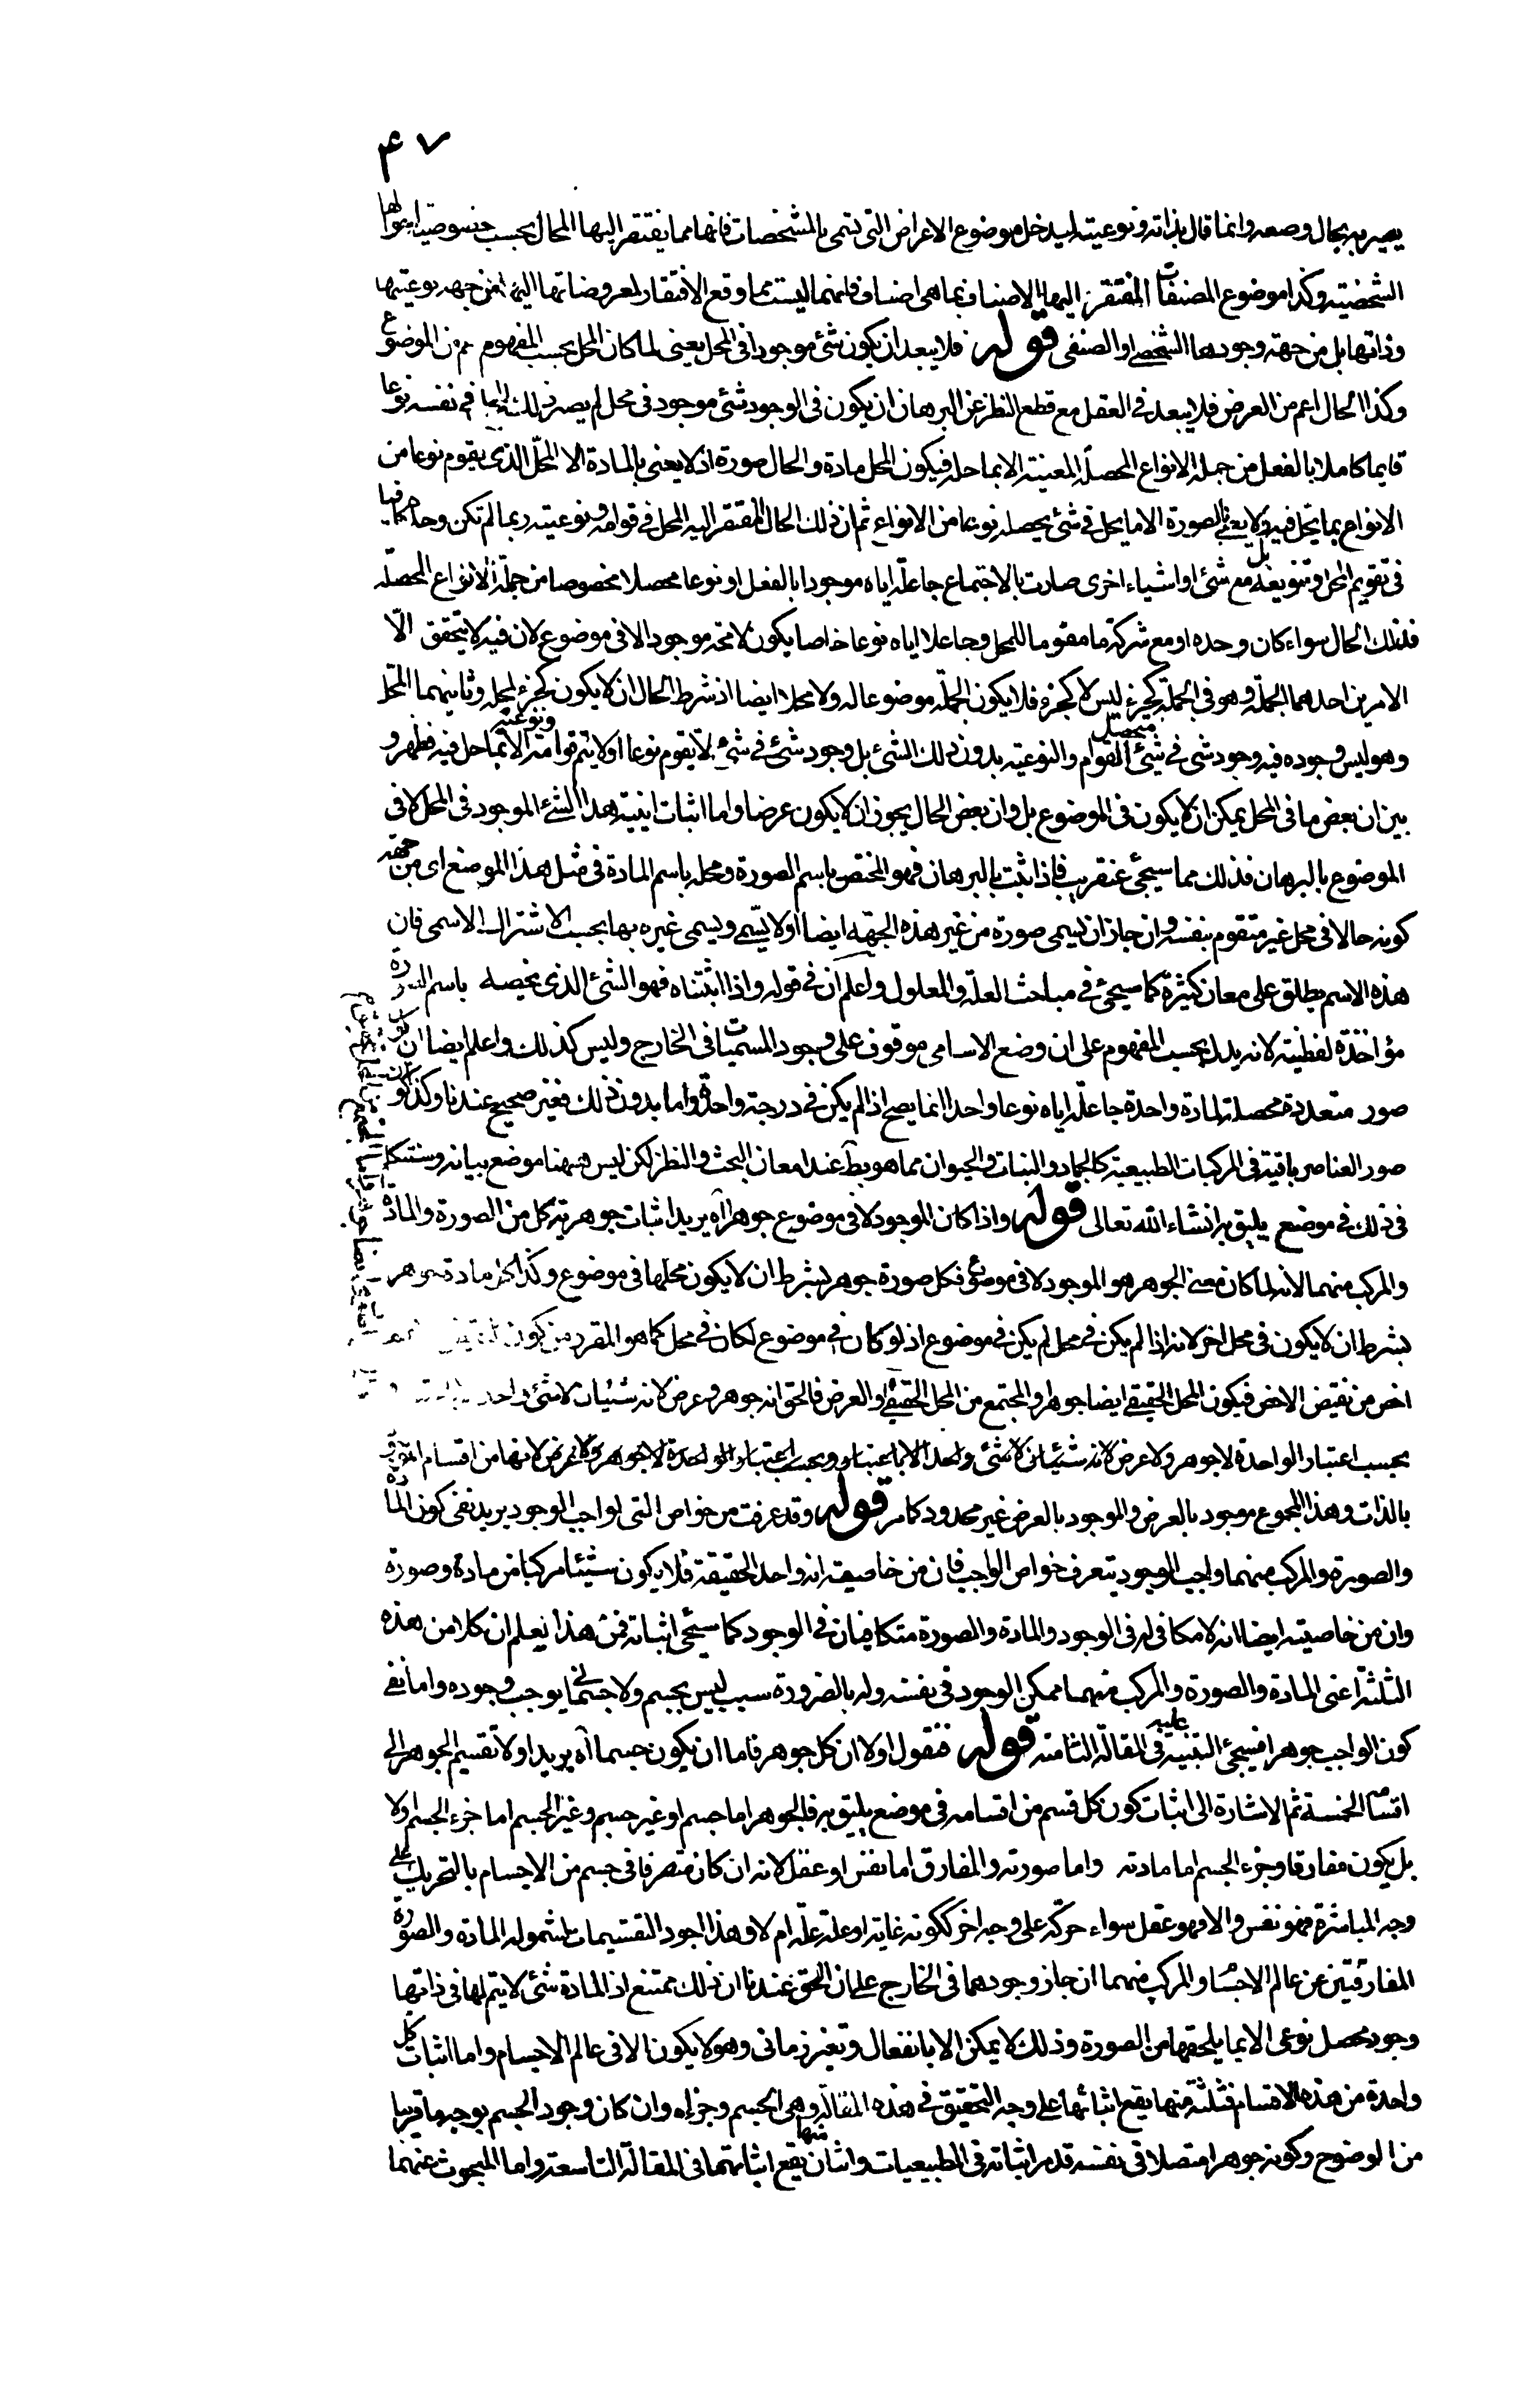 ٤٧
يصير به بحال وصفه وانما قال بذاته ونوعيته ليدخل موضوع الاعراض التى تسمى بالمشخصات فانها مما يفتقر اليها المحال بحسب خصوصيات احوالها
الشخصيته وكذا موضوع المصنفات المفتقر اليها الاصناف بما هى اصناف فانها ليست مما وقع الافتقار لمعروضاتها اليها من جهه نوعيتها
وذاتها بل من جهته وجودها الشخصى او الصنفى قوله فلا يبعد ان يكون شئ موجودا فى المحل يعنى لما كان المحل بحسب المفهوم اعم من الموضوع
وكذا الحال اعم من العرض فلا يبعد فى العقل مع قطع النظر عن البرهان ان يكون فى الوجود شئ موجود فى محل لم يصر ذلك المحل فى نفسه نوعا
قايما كاملا بالفعل من جمله الانواع المحصله المعينته الا بما حله فيكون المحل مادة والحال صورة اذ لا يعنى بالمادة الا المحل الذى يقوم نوعا من
الانواع بما يحل فيه ولا يعنى بالصورة الا ما يحل فى شئ يحصله نوعا من الانواع ثم ان ذلك الحال المفتقر اليه المحل فى قوامه ونوعيته ربما لم تكن وحدها كافيا
فى تقويم المحل وتنويعه بل مع شئ او اشياء اخرى صارت بالاجتماع جاعله اياه موجودا بالفعل او نوعا محصلا مخصوصا من جملة الانواع المحصله
فذلك الحال سواء كان وحده او مع شركة ما مقوما للمحل وجاعلا اياه نوعا خاصا يكون لا محه موجود الا فى موضوع لان فيه لا يتحقق الّا
الامرين احدهما الجمله وهو فى الجمله كجزء ليس لا كجزء فلا يكون الجمله موضوعا له ولا محلا ايضا اذ شرط الحال ان لا يكون كجزء لمحله وثانيهما المحل
وهو ليس وجوده فيه وجود شئ فى شئ متحصل القوام والنوعيته بدون ذلك الشئ بل وجود شئ فى شئ لا يقوم نوعا او لا يتم قوامه ونوعيته الا بما حل فيه فظهر و
بين ان بعض ما فى المحل يمكن ان لا يكون فى الموضوع بل وان بعض الحال يجوز ان لا يكون عرضا واما اثبات اينيته هذا الشئ الموجود فى المحل لا فى
الموضوع بالبرهان فذلك مما سيجئ عنقريب فاذا ثبت بالبرهان فهو المختص باسم الصورة ومحله باسم المادة فى مثل هذا الموضع اى من جهه
كونه حالا فى محل غير متقوم بنفسه وان جاز ان يسمى صورة من غير هذه الجهه ايضا او لا يسمى ويسمى غيره بها بحسب الاشتراك الاسمى فان
هذه الاسم يطلق على معان كثيرة كما سيجئ فى مباحث العله والمعلول واعلم ان فى قوله واذا اثبتناه فهو الشئ الذى يخصه باسم الصورة
مؤاخذة لفظيته لانه يدل بحسب المفهوم على ان وضع الاسامى موقوف على وجود المسميات فى الخارج وليس كذلك واعلم ايضا ان كون
صور متعددة محصلته لمادة واحدة جاعله اياه نوعا واحدا انما يصح اذا لم يكن فى درجته واحدة واما بدون ذلك فغير صحيح عندنا وكذا كون
صور العناصر باقيته فى المركبات الطبيعيته كالجماد والنبات والحيوان مما هو بطّ عند امعان البحث والنظر لكن ليس ههنا موضع بيانه وستتكلم
فى ذلك فى موضع يليق به انشاء الله تعالى قوله واذا كان الموجود لا فى موضوع جوهرا آه يريد اثبات جوهريته كل من الصورة والمادة
والمركب منهما لانه لما كان معنى الجوهر هو الموجود لا فى موضوع فكل صورة جوهر بشرط ان لا يكون محلها فى موضوع وكذا كل مادة جوهر
بشرط ان لا يكون فى محل اخر لانه اذا لم يكن فى محل لم يكن فى موضوع اذ لو كان فى موضوع لكان فى محل كما هو المقرر من كون نقيض
اخص من نقيض الاخص فيكون المحل الحقيقى ايضا جوهرا والمجتمع من المحل الحقيقى او العرض فالحق انه جوهر وعرض لانه شيئان لا شئ واحد
بحسب اعتبار الواحدة لا جوهر ولا عرض لانه شيئان لا شئ واحد الا باعتبار وبحسب اعتبار الواحدة لا جوهر ولا عرض لانهما من اقسام الموجود
بالذات وهذا المجموع موجود بالعرض والموجود بالعرض غير محدود كما مر قوله وقد عرفت من خواص التى لواجب الوجود يريد نفى كون المادة
والصورة والمركب منهما واجب الوجود بتعرف خواص الواجب فان من خاصيته انه واحد الحقيقة فلا يكون شيئا مركبا من مادة وصورة
وان من خاصيته ايضا انه لا مكافى له فى الوجود والمادة والصورة متكافيان فى الوجود كما سيجئ اثباته فمن هذا يعلم ان كلا من هذه
الثلثه اعنى المادة والصورة والمركب منهما ممكن الوجود فى نفسه وله بالضرورة سبب ليس بجسم ولا جسمانى يوجب وجوده واما نفى
كون الواجب جوهرا فسيجئ التنبيه عليه فى المقاله الثامنه قوله فنقول اولا ان كل جوهر فاما ان يكون جسما آه يريد اولا تقسيم الجوهر الى
اقسامه الخمسة ثم الاشارة الى اثبات كون كل قسم من اقسامه فى موضع يليق به فالجوهر اما جسم او غير جسم وغير الجسم اما جزء الجسم اولا
بل يكون مفارقا وجزء الجسم اما مادته واما صورته والمفارق اما نفس او عقل لانه ان كان متصرفا فى جسم من الاجسام بالتحريك على
وجه المباشرة فهو نفس والا فهو عقل سواء حركه على وجه اخر ككونه غايته او علته علّه ام لا وهذا اجود التقسيمات لشموله المادة والصورة
المفارقتين عن عالم الاجسام والمركب منهما ان جاز وجودهما فى الخارج على ان الحق عندنا ان ذلك ممتنع اذ المادة شئ لا يتم لها فى ذاتها
وجود محصل نوعى الا بما يلحقها من الصورة وذلك لا يمكن الا بانفعال وتغير زمانى وهو لا يكون الا فى عالم الاجسام واما اثبات كل
واحدة من هذه الاقسام فثلثه منها يقع اثباتها على وجه التحقيق فى هذه المقاله وهى الجسم وجزءاه وان كان وجود الجسم بوجه ما قريبا
من الوضوح وكونه جوهرا متصلا فى نفسه قد مر اثباته فى الطبيعيات واثنان منها يقع اثباتهما فى المقالة التاسعه واما المبحوث عنهما